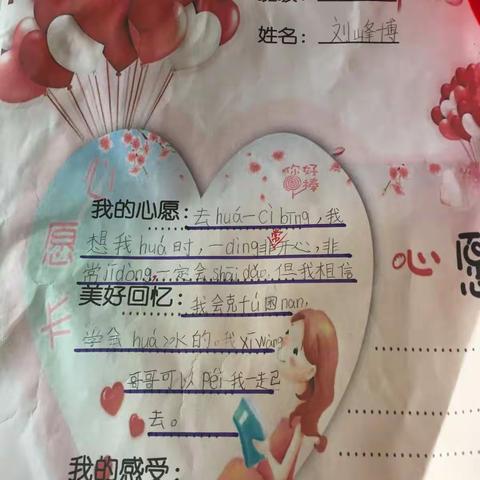 姓名：刘峰博
你好棒
心愿卡
我的心愿：去huá一cì bīng，我
想我huá时，一dìng非常开心，非
常jīdòng，一定会shuāi dǎo。但我相信
美好回忆：我会克fú困nan，
学会huá冰的。我xīwàng
哥哥可以péi我一起
去。
我的感受：
心愿